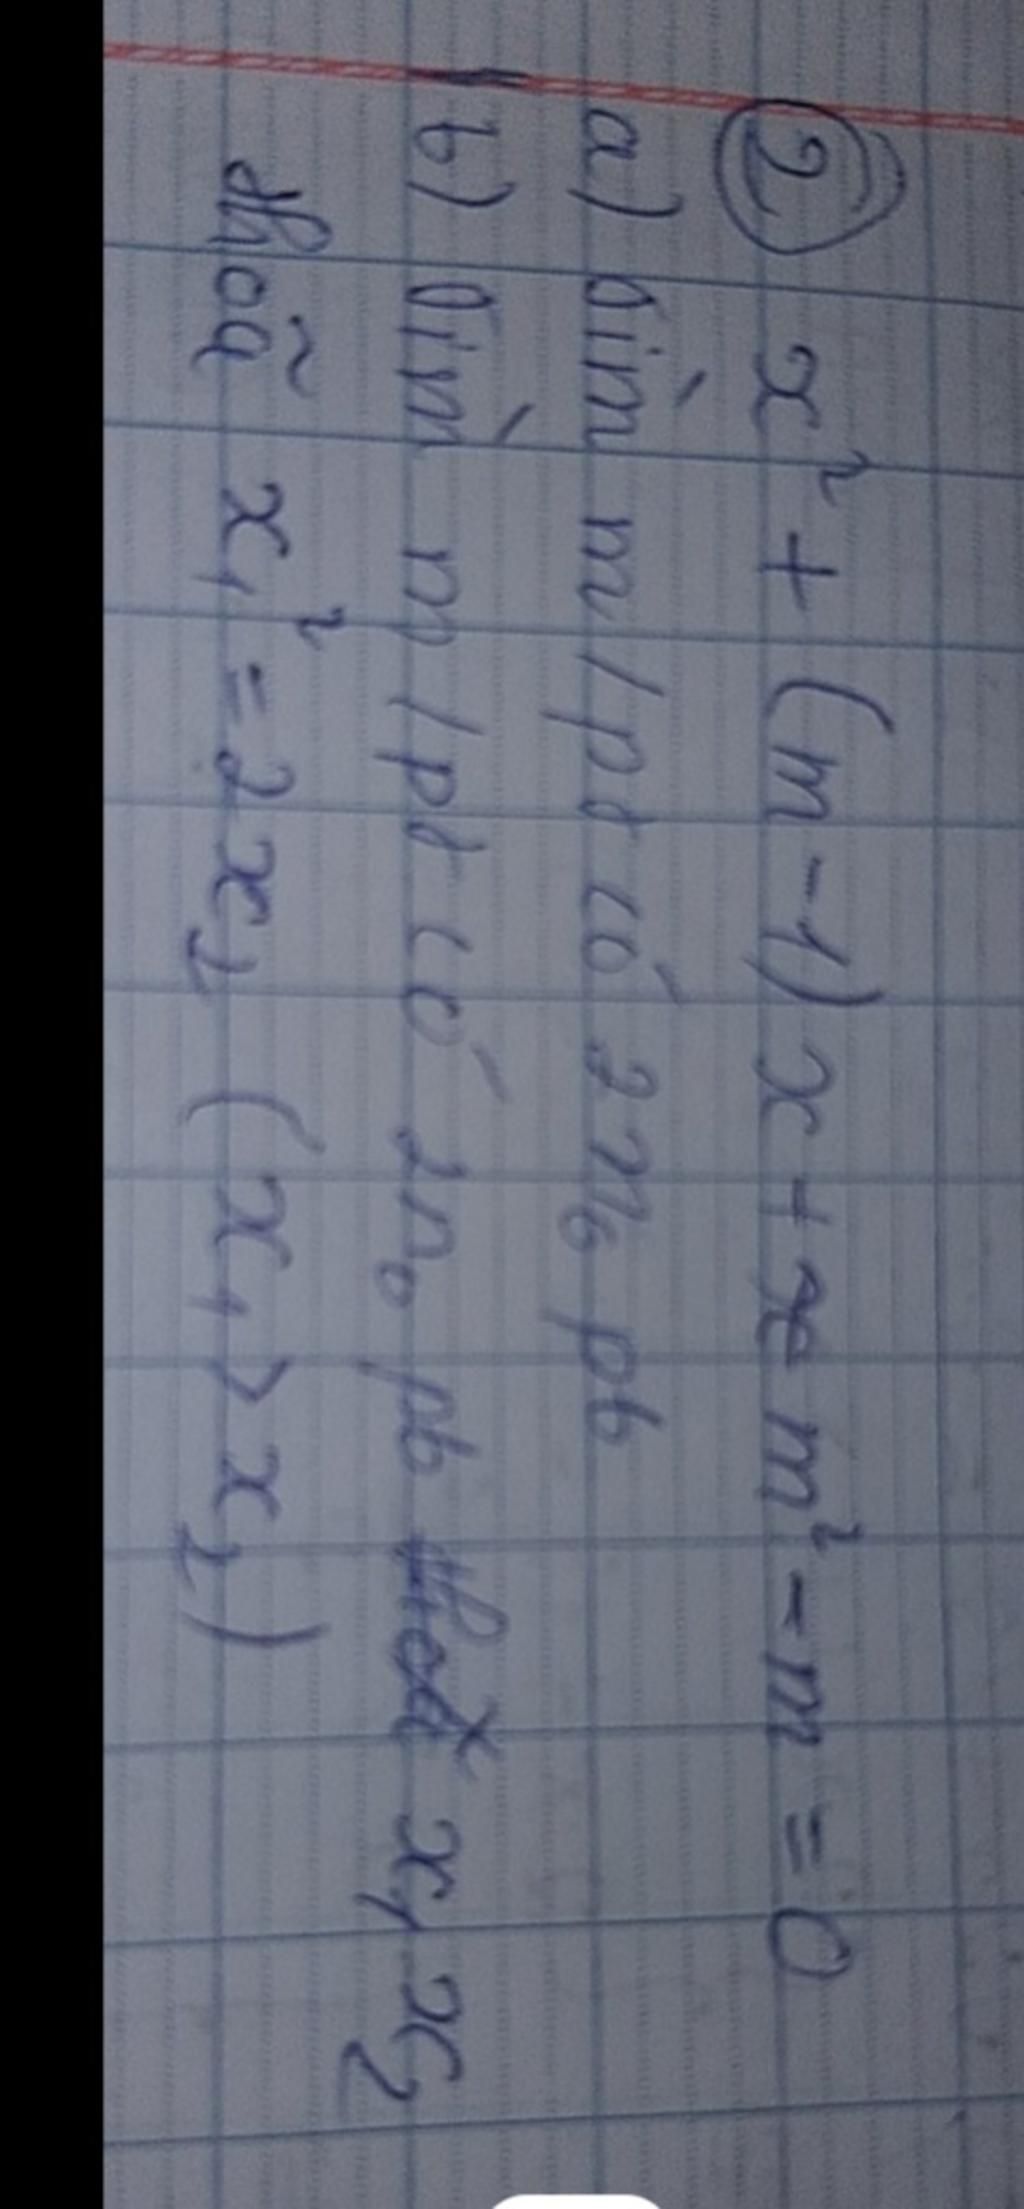 2 x² + (m-1)x + m² - m = 0
a) tìm m / pt có 2 n₀ pb
b) tìm m / pt có 2 n₀ pb x₁ x₂
thoã x₁² = 2x₂ (x₁ > x₂)